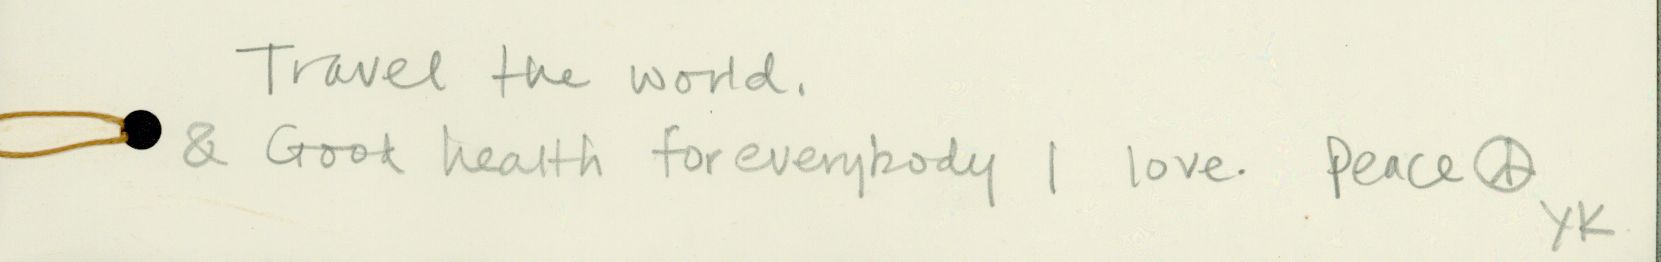 Travel the world.
& Good health for everybody I love. Peace ☮
YK